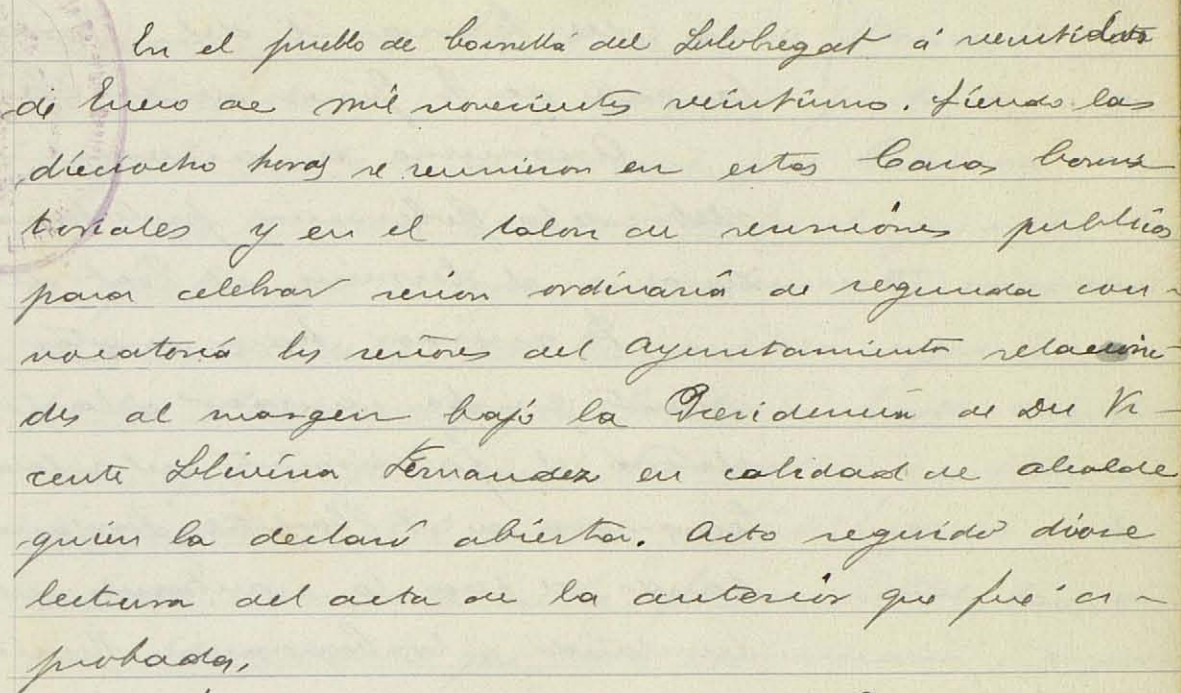 En el pueblo de Cornellá del Llobregat á veintidos
de Enero de mil novecientos veintiuno. Siendo las
dieciocho horas se reunieron en estas Casas Consis
toriales y en el salon de reuniones publicas
para celebrar sesion ordinaria de segunda con-
vocatoria los señores del Ayuntamiento relaciona
dos al margen bajo la Presidencia de Dn Vi-
cente Llivina Fernandez en calidad de alcalde
quien la declaró abierta. Acto seguido dióse
lectura del acta de la anterior que fué a-
probada.